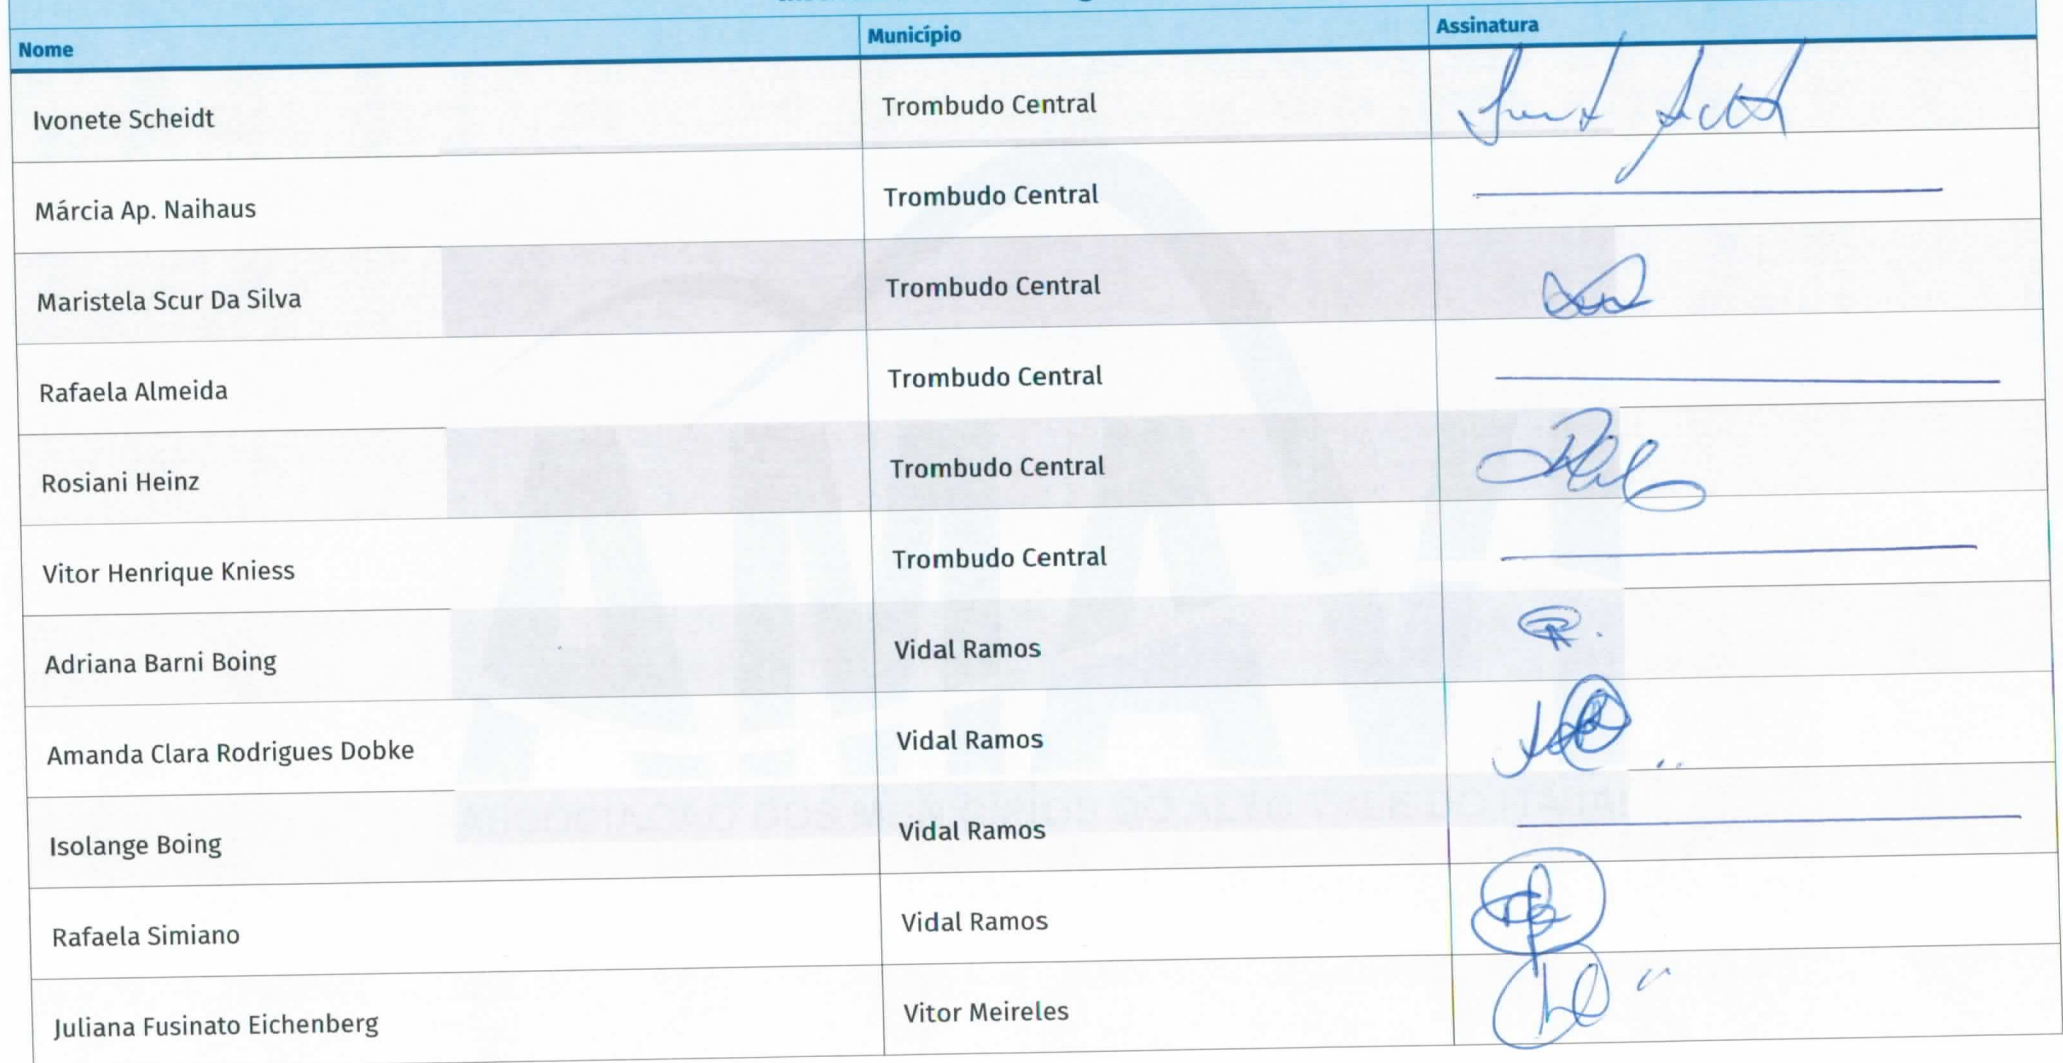 Nome Município Assinatura
Ivonete Scheidt Trombudo Central
Márcia Ap. Naihaus Trombudo Central
Maristela Scur Da Silva Trombudo Central
Rafaela Almeida Trombudo Central
Rosiani Heinz Trombudo Central
Vitor Henrique Kniess Trombudo Central
Adriana Barni Boing Vidal Ramos
Amanda Clara Rodrigues Dobke Vidal Ramos
Isolange Boing Vidal Ramos
Rafaela Simiano Vidal Ramos
Juliana Fusinato Eichenberg Vitor Meireles